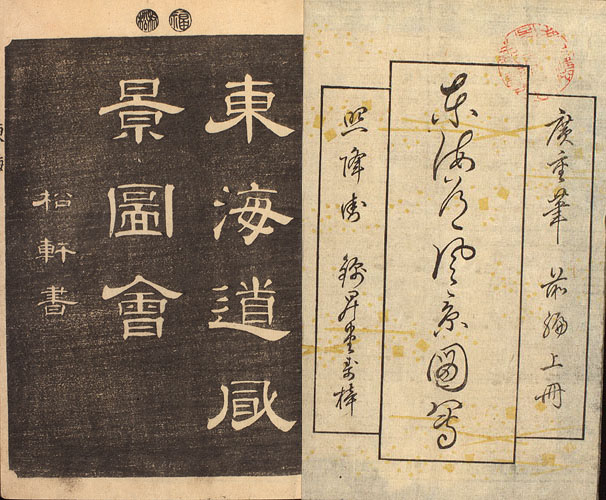 廣重筆 前編上冊
東海道風景圖會
照降町 錦昇堂壽梓
東海道凬
景圖會
松軒書